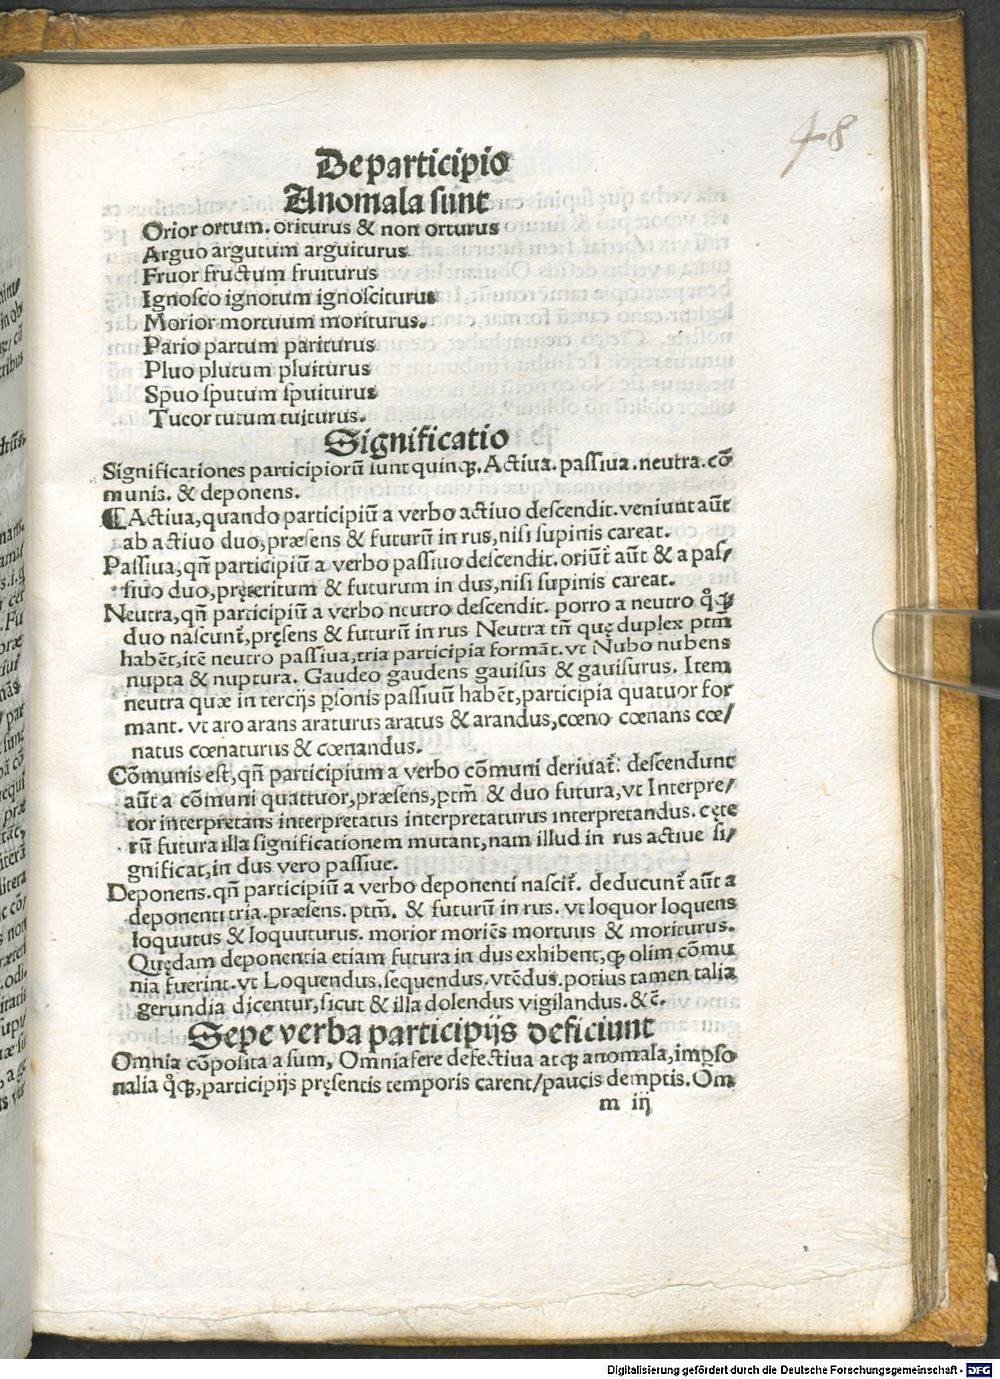 48
De participio
Anomala sunt
Orior ortum. oriturus & non orturus
Arguo argutum arguiturus
Fruor fructum fruiturus
Ignosco ignotum ignosciturus
Morior mortuum moriturus.
Pario partum pariturus
Pluo plutum pluiturus
Spuo sputum spuiturus
Tueor tutum tuiturus.
Significatio
Significationes participiorū sunt quinqꝫ. Actiua. passiua. neutra. cō
munis. & deponens.
⸿ Actiua, quando participiū a verbo actiuo descendit. veniunt aūt
ab actiuo duo, præsens & futurū in rus, nisi supinis careat.
Passiua, qñ participiū a verbo passiuo descendit. oriūt̃ aūt & a pas/
siuo duo, pręteritum & futurum in dus, nisi supinis careat.
Neutra, qñ participiū a verbo neutro descendit. porro a neutro q̊qꝫ
duo nascunt̃, pręsens & futurū in rus Neutra tñ quę duplex ptm̄
habēt, itē neutro passiua, tria participia formāt. vt Nubo nubens
nupta & nuptura. Gaudeo gaudens gauisus & gauisurus. Item
neutra quæ in tercijs ꝑsonis passiuū habēt, participia quatuor for
mant. vt aro arans araturus aratus & arandus, cœno cœnans cœ/
natus cœnaturus & cœnandus.
Cōmunis est, qñ participium a verbo cōmuni deriuat̃: descendunt
aūt a cōmuni quattuor, præsens, ptm̄ & duo futura, vt Interpre/
tor interpretans interpretatus interpretaturus interpretandus. cęte
rū futura illa significationem mutant, nam illud in rus actiue si/
gnificat, in dus vero passiue.
Deponens. qñ participiū a verbo deponenti nascit̃. deducunt̃ aūt a
deponenti tria. præsens. ptm̄. & futurū in rus. vt loquor loquens
loquutus & loquuturus. morior moriēs mortuus & moriturus.
Quędam deponentia etiam futura in dus exhibent, ꝙ olim cōmu
nia fuerint. vt Loquendus. sequendus. vtēdus. potius tamen talia
gerundia dicentur, sicut & illa dolendus vigilandus. &c̄.
Sepe verba participijs deficiunt
Omnia cōposita a sum, Omnia fere defectiua atqꝫ anomala, imꝑso
nalia q̊qꝫ, participijs pręsentis temporis carent/paucis demptis. Om
m iij
Digitalisierung gefördert durch die Deutsche Forschungsgemeinschaft - DFG